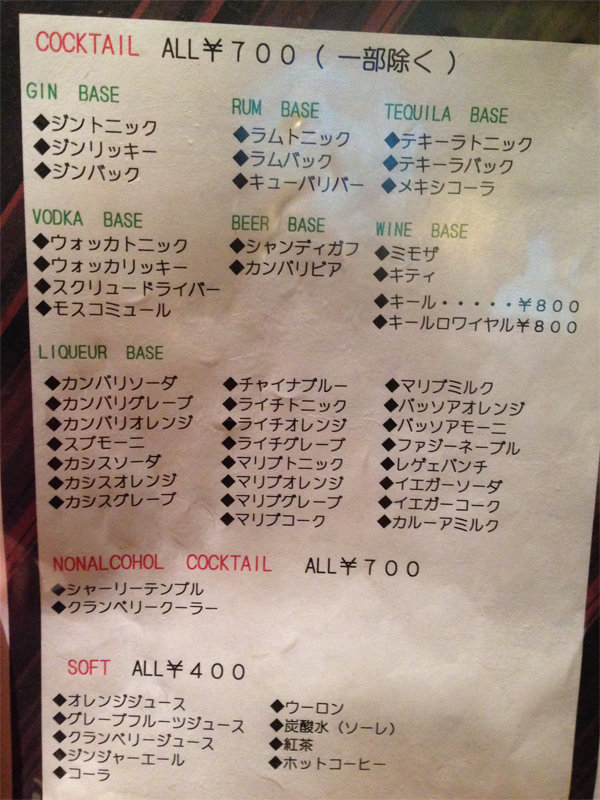 COCKTAIL ALL￥７００（一部除く）
GIN BASE
◆ジントニック
◆ジンリッキー
◆ジンバック
RUM BASE
◆ラムトニック
◆ラムバック
◆キューバリバー
TEQUILA BASE
◆テキーラトニック
◆テキーラバック
◆メキシコーラ
VODKA BASE
◆ウォッカトニック
◆ウォッカリッキー
◆スクリュードライバー
◆モスコミュール
BEER BASE
◆シャンディガフ
◆カンパリビア
WINE BASE
◆ミモザ
◆キティ
◆キール・・・・・￥８００
◆キールロワイヤル￥８００
LIQUEUR BASE
◆カンパリソーダ
◆カンパリグレープ
◆カンパリオレンジ
◆スプモーニ
◆カシスソーダ
◆カシスオレンジ
◆カシスグレープ
◆チャイナブルー
◆ライチトニック
◆ライチオレンジ
◆ライチグレープ
◆マリブトニック
◆マリブオレンジ
◆マリブグレープ
◆マリブコーク
◆マリブミルク
◆パッソアオレンジ
◆パッソアモーニ
◆ファジーネーブル
◆レゲェパンチ
◆イエガーソーダ
◆イエガーコーク
◆カルーアミルク
NONALCOHOL COCKTAIL ALL￥７００
◆シャーリーテンプル
◆クランベリークーラー
SOFT ALL￥４００
◆オレンジジュース
◆グレープフルーツジュース
◆クランベリージュース
◆ジンジャーエール
◆コーラ
◆ウーロン
◆炭酸水（ソーレ）
◆紅茶
◆ホットコーヒー